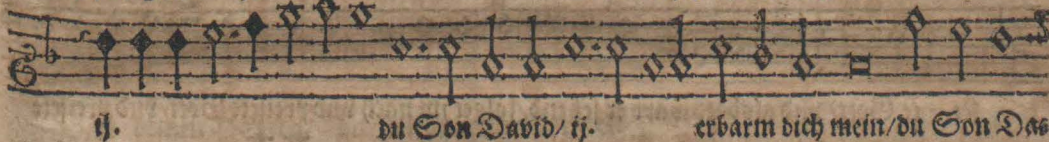 ij. du Son David/ ij. erbarm dich mein/du Son Das